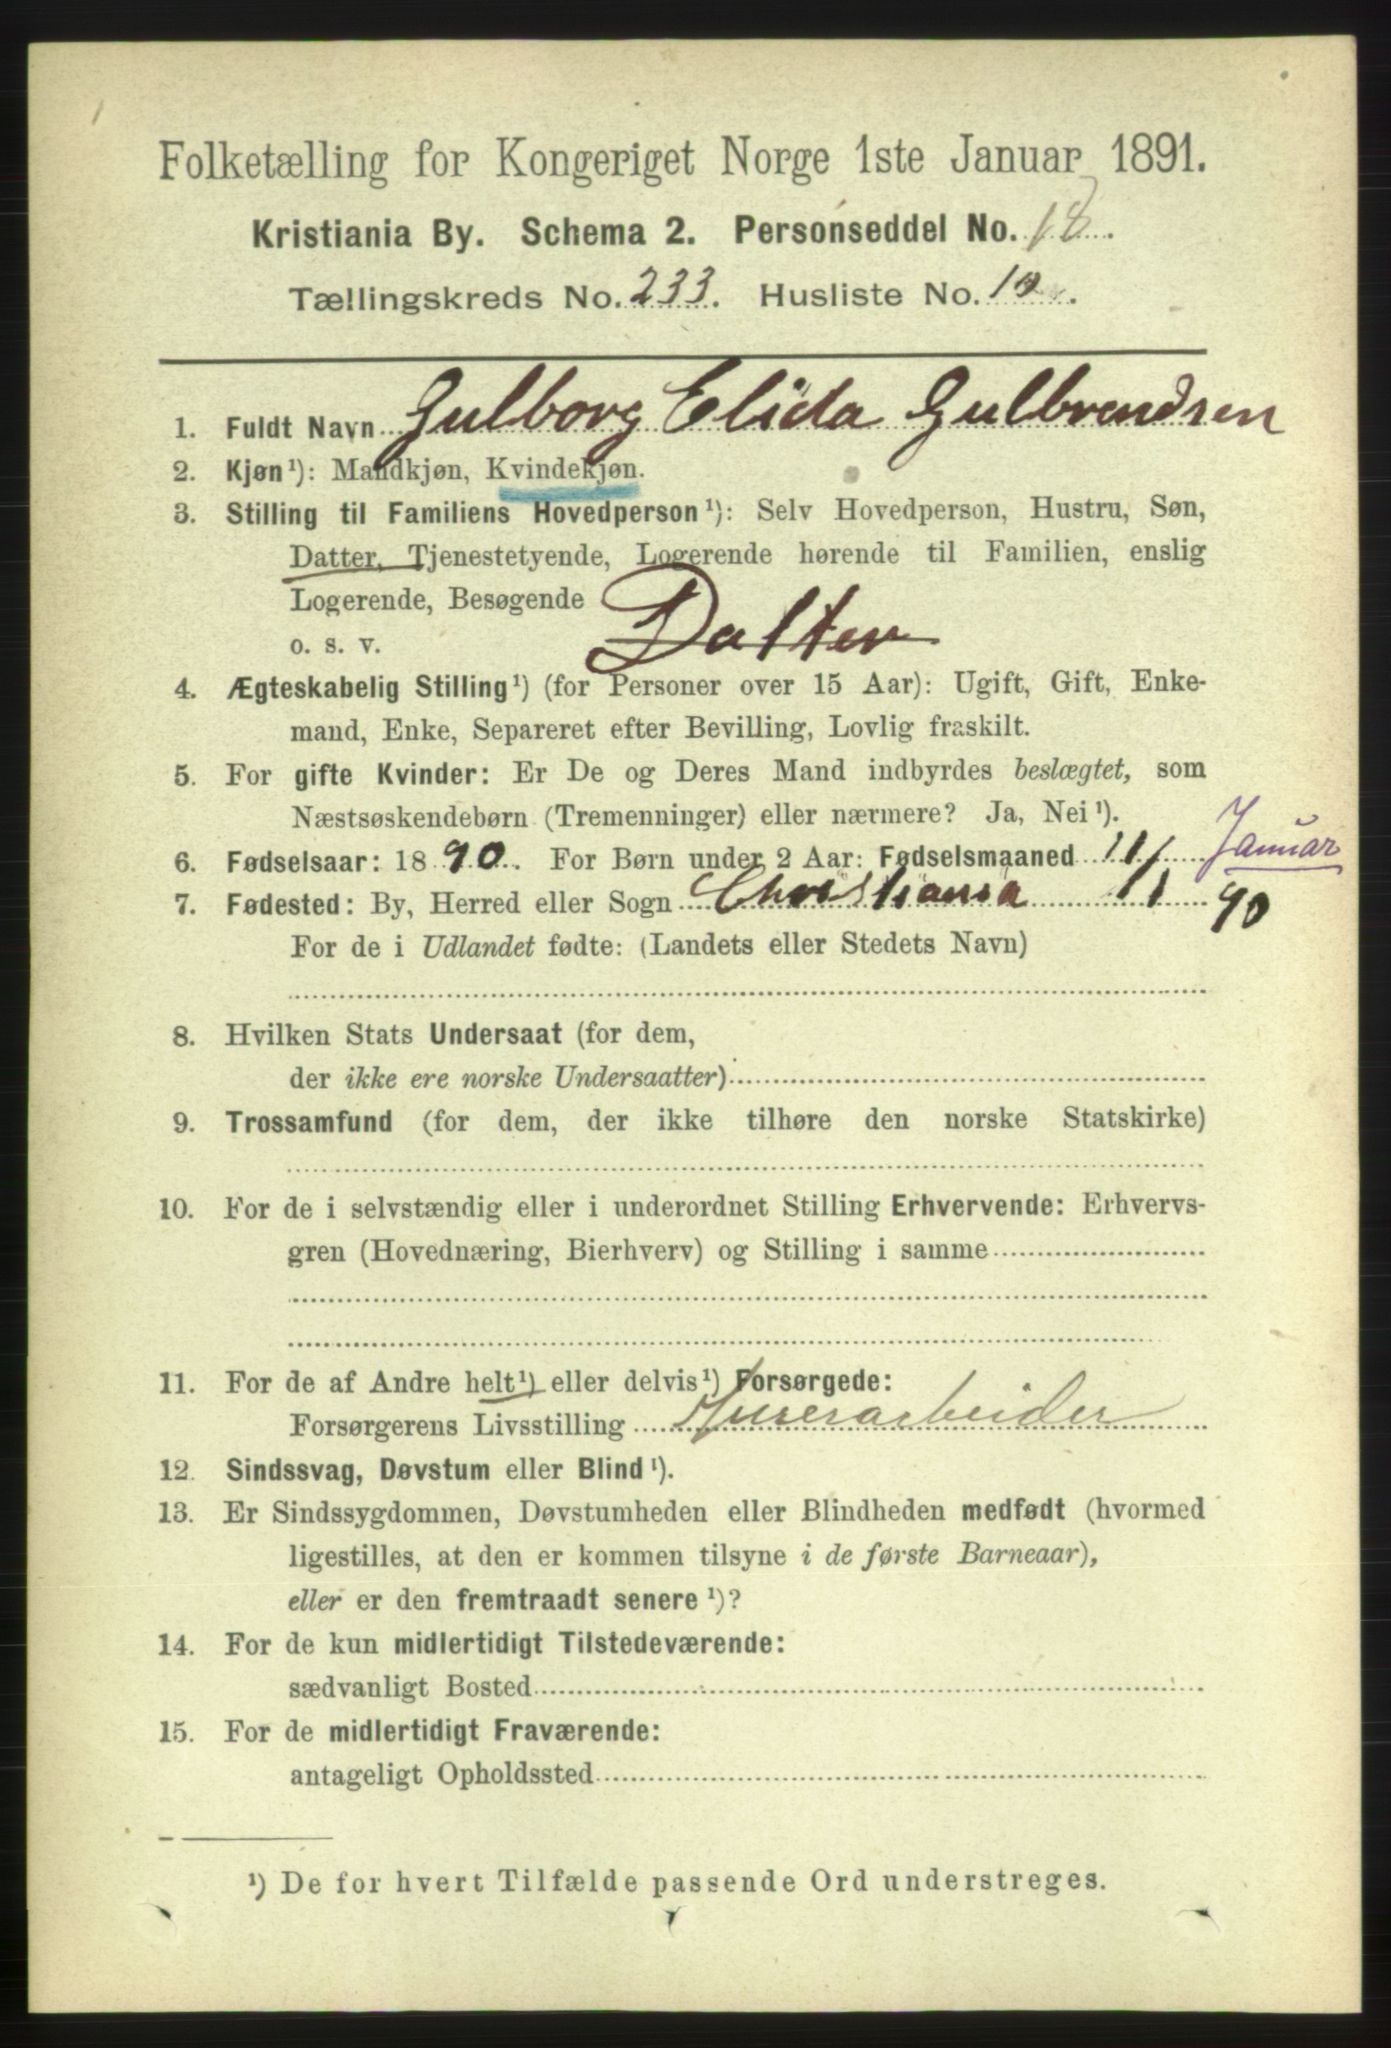 Folketælling for Kongeriget Norge 1ste Januar 1891.
Kristiania By. Schema 2. Personseddel No. 18.
Tællingskreds No. 233. Husliste No. 10.
1. Fuldt Navn Gulborg Elida Gulbrendsen
2. Kjøn¹): Mandkjøn, Kvindekjøn.
3. Stilling til Familiens Hovedperson¹): Selv Hovedperson, Hustru, Søn,
Datter, Tjenestetyende, Logerende hørende til Familien, enslig
Logerende, Besøgende
o. s. v. Datter
4. Ægteskabelig Stilling¹) (for Personer over 15 Aar): Ugift, Gift, Enke-
mand, Enke, Separeret efter Bevilling, Lovlig fraskilt.
5. For gifte Kvinder: Er De og Deres Mand indbyrdes beslægtet, som
Næstsøskendebørn (Tremenninger) eller nærmere? Ja, Nei¹).
6. Fødselsaar: 1890. For Børn under 2 Aar: Fødselsmaaned 11/1 Januar
7. Fødested: By, Herred eller Sogn Christiania 90
For de i Udlandet fødte: (Landets eller Stedets Navn)
8. Hvilken Stats Undersaat (for dem,
der ikke ere norske Undersaatter)
9. Trossamfund (for dem, der ikke tilhøre den norske Statskirke)
10. For de i selvstændig eller i underordnet Stilling Erhvervende: Erhvervs-
gren (Hovednæring, Bierhverv) og Stilling i samme
11. For de af Andre helt¹) eller delvis¹) Forsørgede:
Forsørgerens Livsstilling
12. Sindssvag, Døvstum eller Blind¹).
13. Er Sindssygdommen, Døvstumheden eller Blindheden medfødt (hvormed
ligestilles, at den er kommen tilsyne i de første Barneaar),
eller er den fremtraadt senere¹)?
14. For de kun midlertidigt Tilstedeværende:
sædvanligt Bosted
15. For de midlertidigt Fraværende:
antageligt Opholdssted
¹) De for hvert Tilfælde passende Ord understreges.